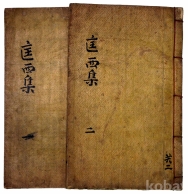 匡西集
一
匡西集
二
共二
koba